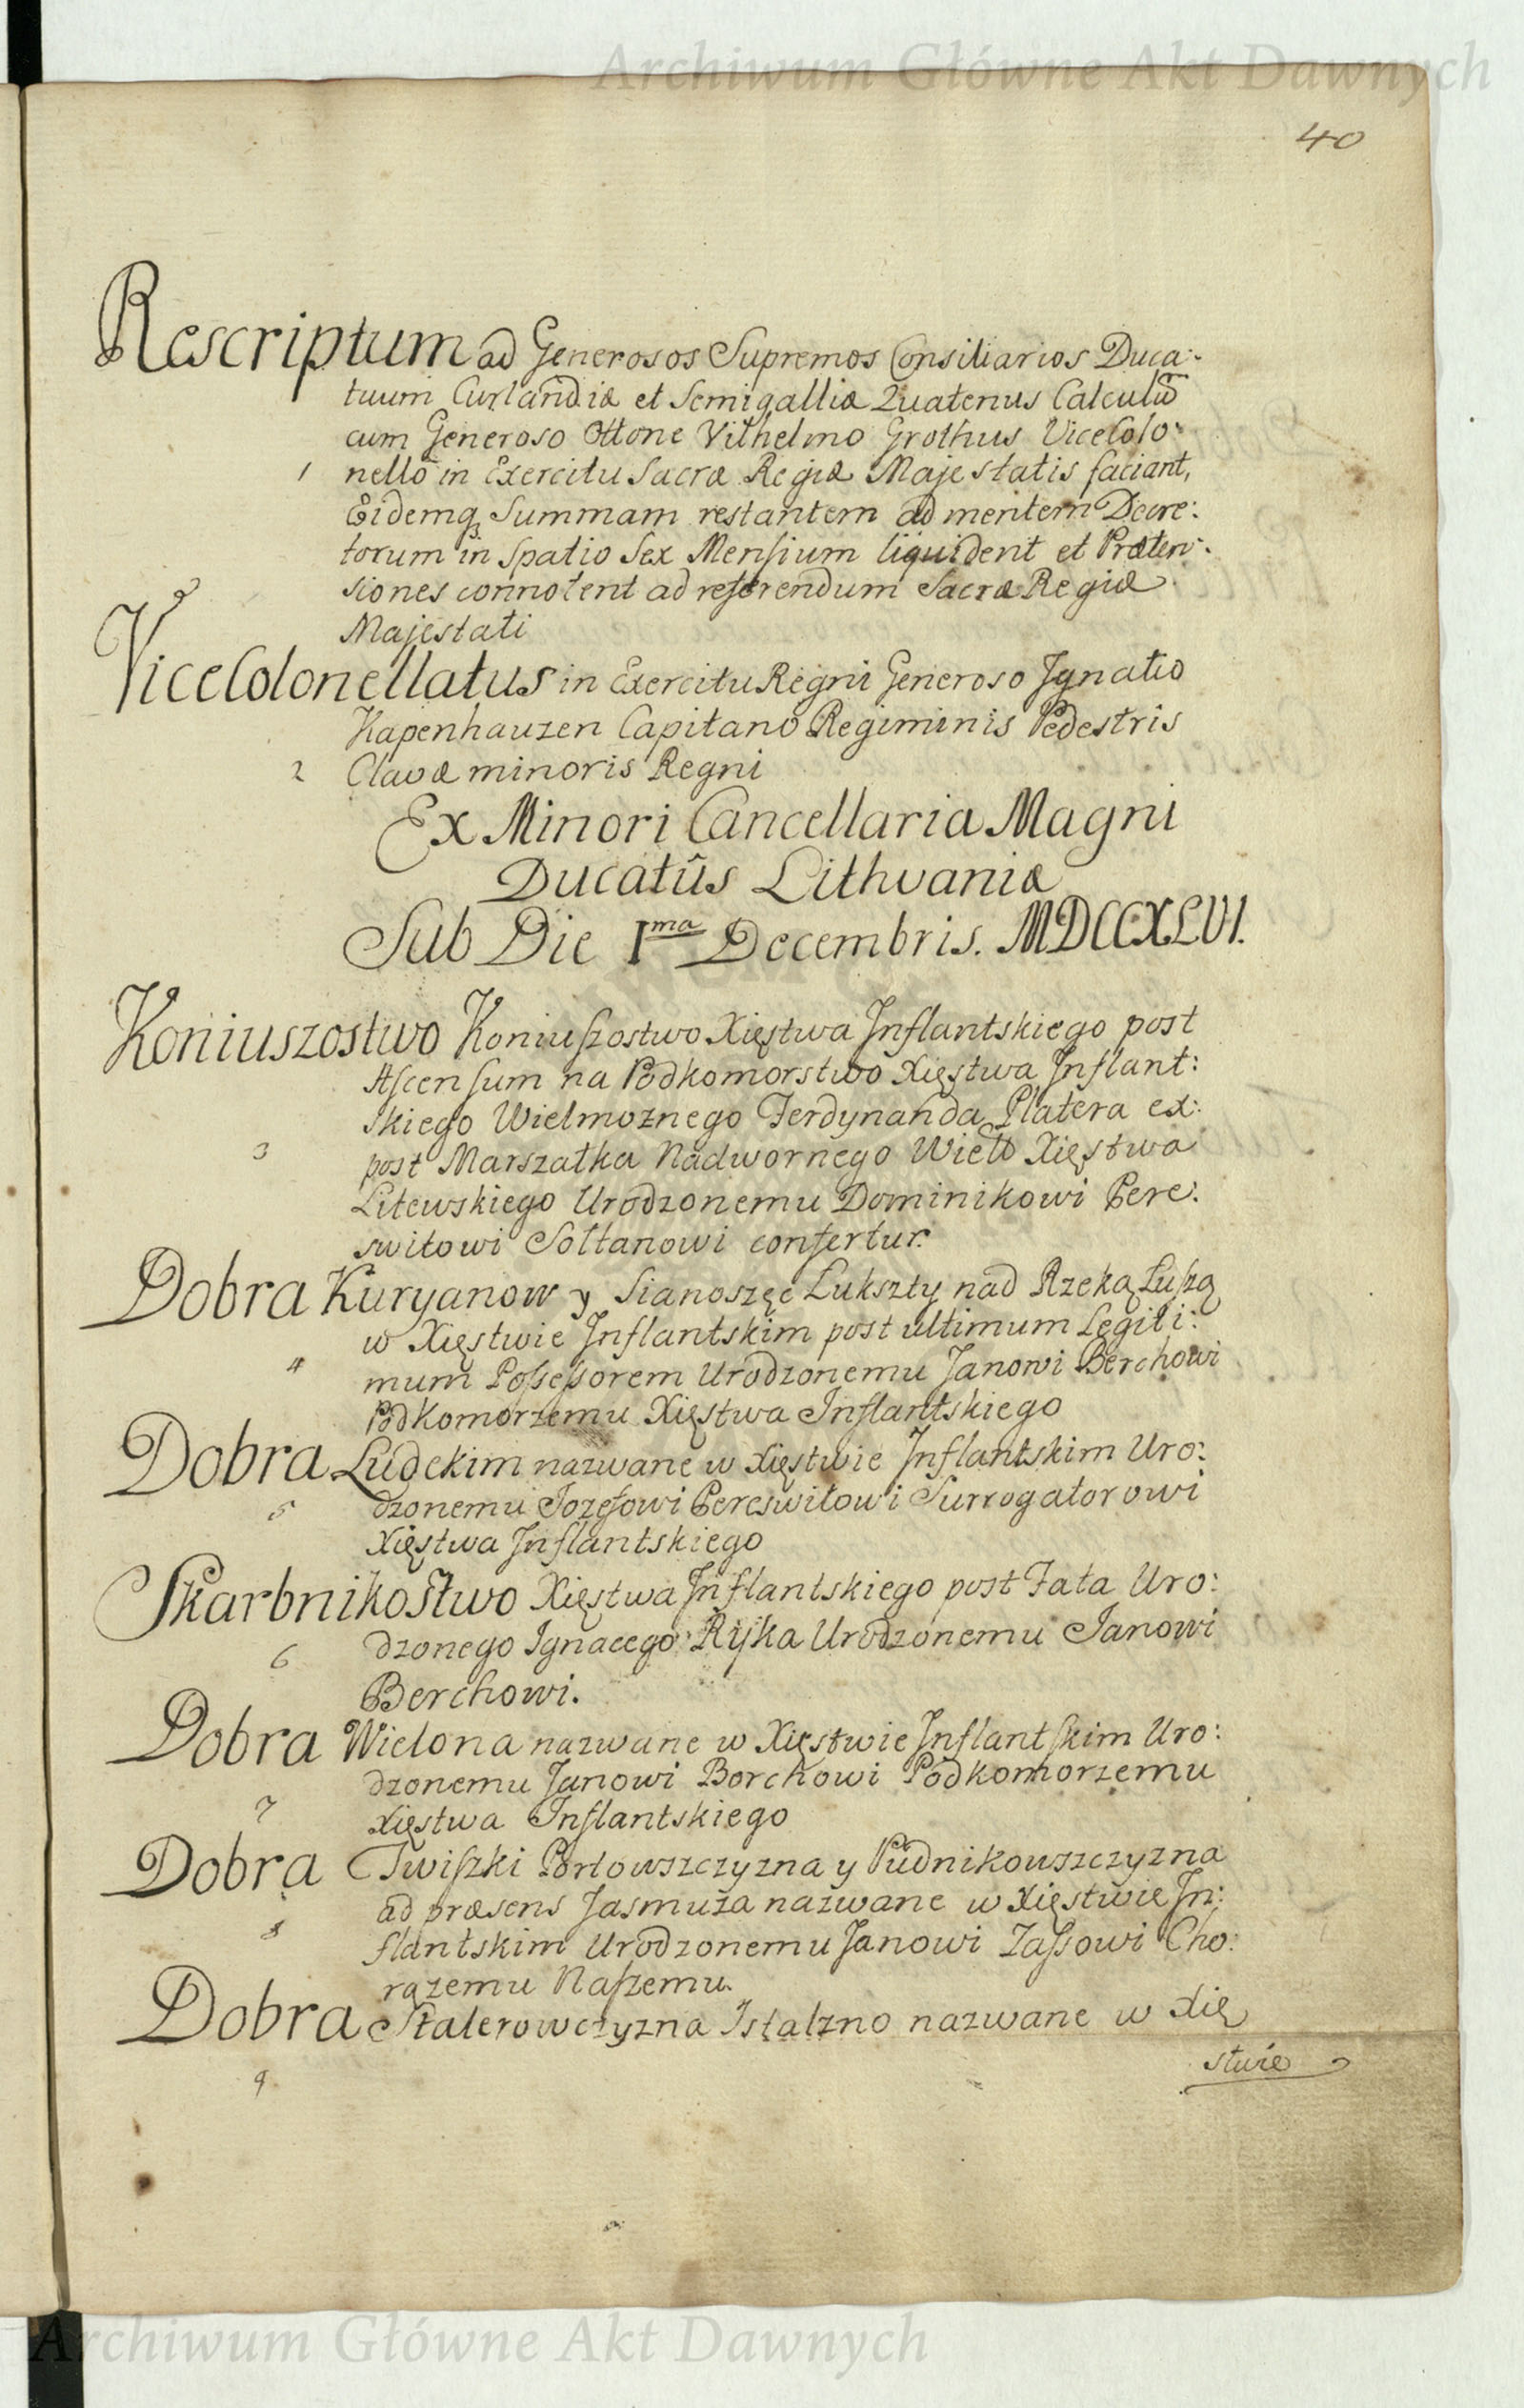 Archiwum Główne Akt Dawnych
40
Rescriptum ad Generosos Supremos Consiliarios Duca:
tuum Curlandiæ et Semigalliæ Quatenus Calculū
cum Generoso Ottone Vilhelmo Grothus ViceColo:
1 nello in Exercitu Sacræ Regiæ Majestatis faciant,
Eidemq Summam restantem ad mentem Decre:
torum in Spatio Sex Mensium liquident et Præten:
siones connotent ad referendum Sacræ Regiæ
Majestati
ViceColonellatus in Exercitu Regni Generoso Jgnatio
Kapenhauzen Capitano Regiminis Pedestris
2 Clavæ minoris Regni
Ex Minori Cancellaria Magni
Ducatûs Lithvaniæ
Sub Die I<sup>ma</sup> Decembris. MDCCXLVI.
Koniuszostwo Koniuszostwo Xięstwa Jnflantskiego post
Ascensum na Podkomorstwo Xięstwa Jnflant:
skiego Wielmoznego Ferdynanda Platera ex:
3 post Marszałka Nadwornego Wielo Xięstwa
Litewskiego Urodzonemu Dominikowi Pere:
switowi Sołtanowi confertur.
Dobra Kuryanow y Sianoszęc Lukszty nad Rzeką Luszą
w Xięstwie Jnflantskim post ultimum Legiti:
4 mum Possessorem Urodzonemu Janowi Berchowi
Podkomorzemu Xięstwa Jnflantskiego
Dobra Ludekim nazwane w Xięstwie Jnflantskim Uro:
5 dzonemu Jozefowi Pereswitowi Surrogatorowi
Xięstwa Jnflantskiego
Skarbnikostwo Xięstwa Jnflantskiego post Fata Uro:
6 dzonego Jgnacego Ryka Urodzonemu Janowi
Berchowi.
Dobra Wielona nazwane w Xięstwie Jnflantskim Uro:
dzonemu Janowi Borchowi Podkomorzemu
7 Xięstwa Jnflantskiego
Dobra Twiszki Porłowszczyzna y Pudnikowszczyzna
ad præsens Jasmuża nazwane w Xięstwie Jn:
8 flantskim Urodzonemu Janowi Zassowi Cho:
rązemu Naszemu.
Dobra Stalerowczyzna Jstalzno nazwane w Xię
stwie
9
Archiwum Główne Akt Dawnych